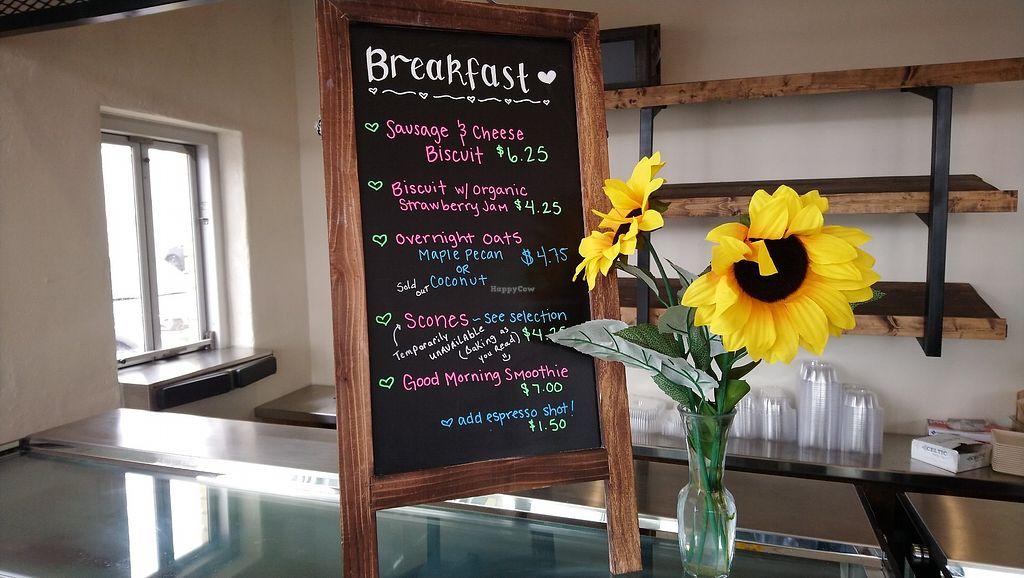 Breakfast
Sausage & Cheese
Biscuit $6.25
Biscuit w/ Organic
Strawberry Jam $4.25
Overnight Oats
Maple Pecan $4.75
OR
Sold out Coconut
HappyCow
Scones ~ see selection
Temporarily unavailable (baking as you read)
Good Morning Smoothie
$7.00
add espresso shot!
$1.50
CELTIC